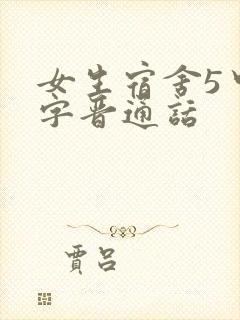 女生宿舍5中
字晋通話
賈呂